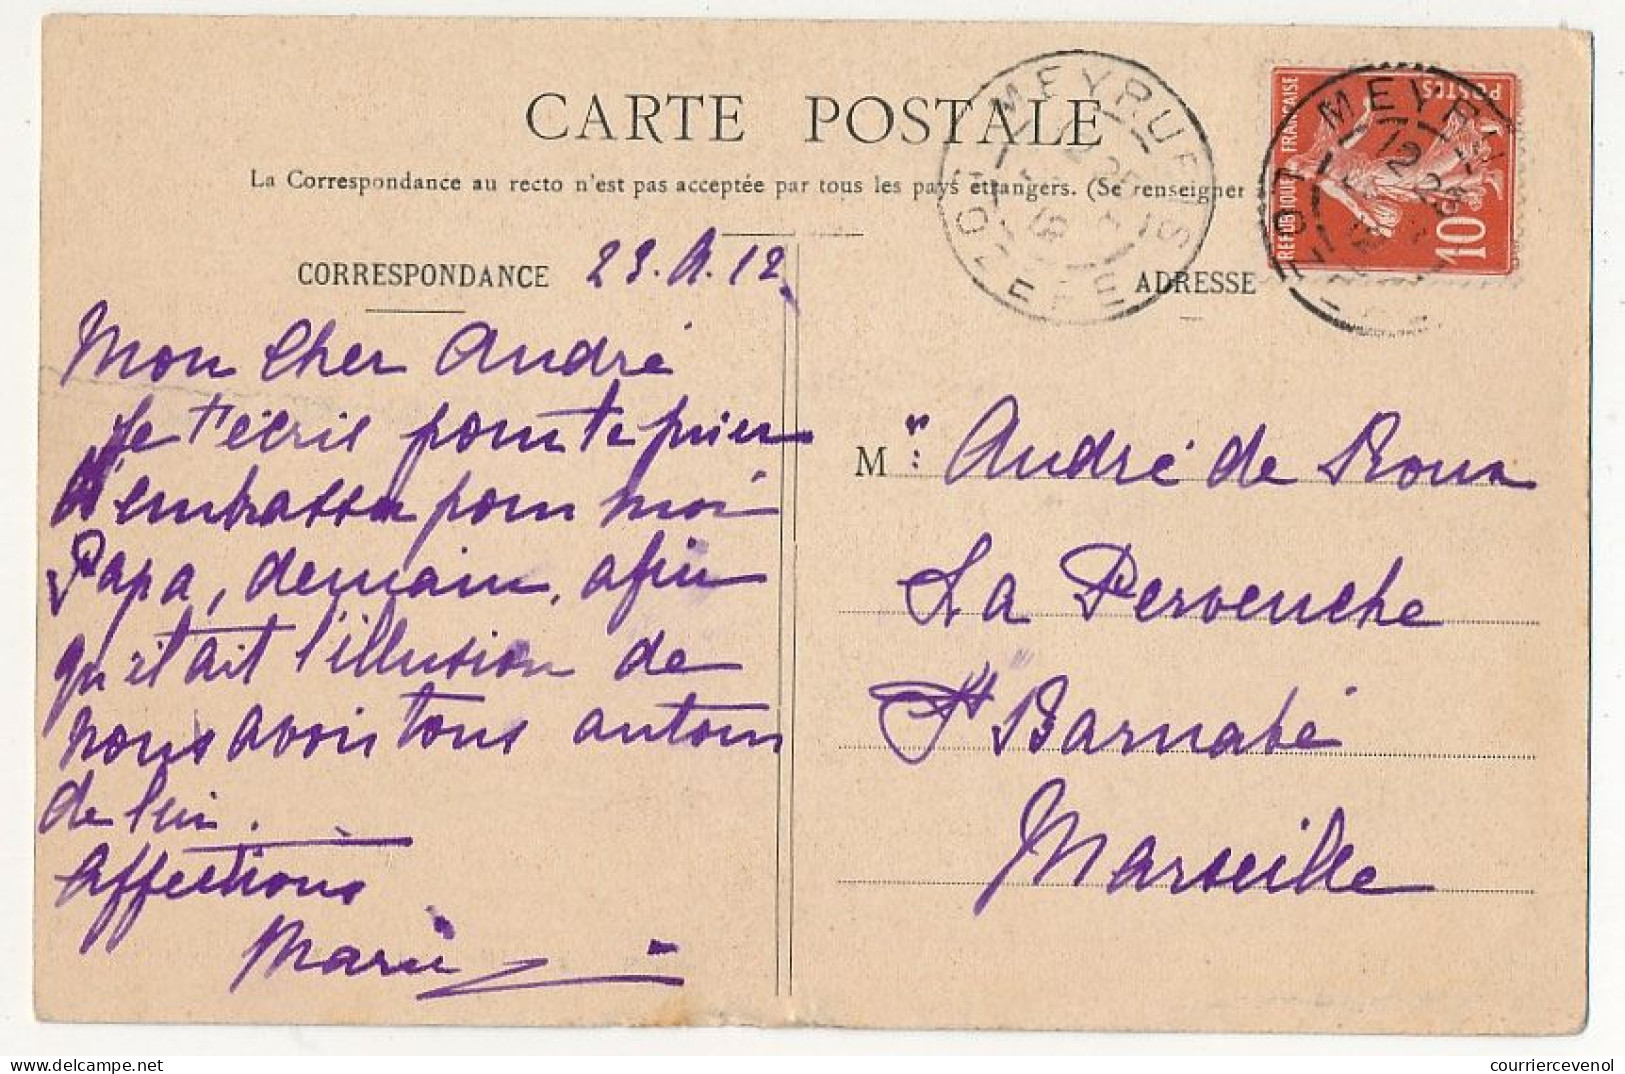 CARTE POSTALE
La Correspondance au recto n'est pas acceptée par tous les pays étrangers. (Se renseigner
CORRESPONDANCE
23. A. 12.
Mon Cher André
Je t'écris pour te prier
d'embrasser pour moi
Papa, demain, afin
qu'il ait l'illusion de
nous avoir tous autour
de lui.
Affections
Marie
ADRESSE
Mr: André de Roux
La Pervenche
St Barnabé
Marseille
MEYRUEIS
LOZERE
REPUBLIQUE FRANÇAISE
POSTES
10
MEYRUEIS
12
courriercevenol.com